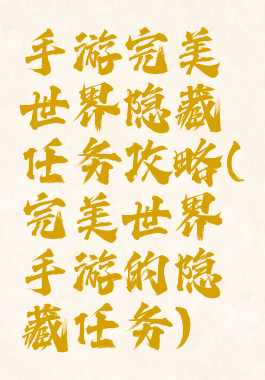 手游完美
世界隐藏
任务攻略(
完美世界
手游的隐
藏任务)